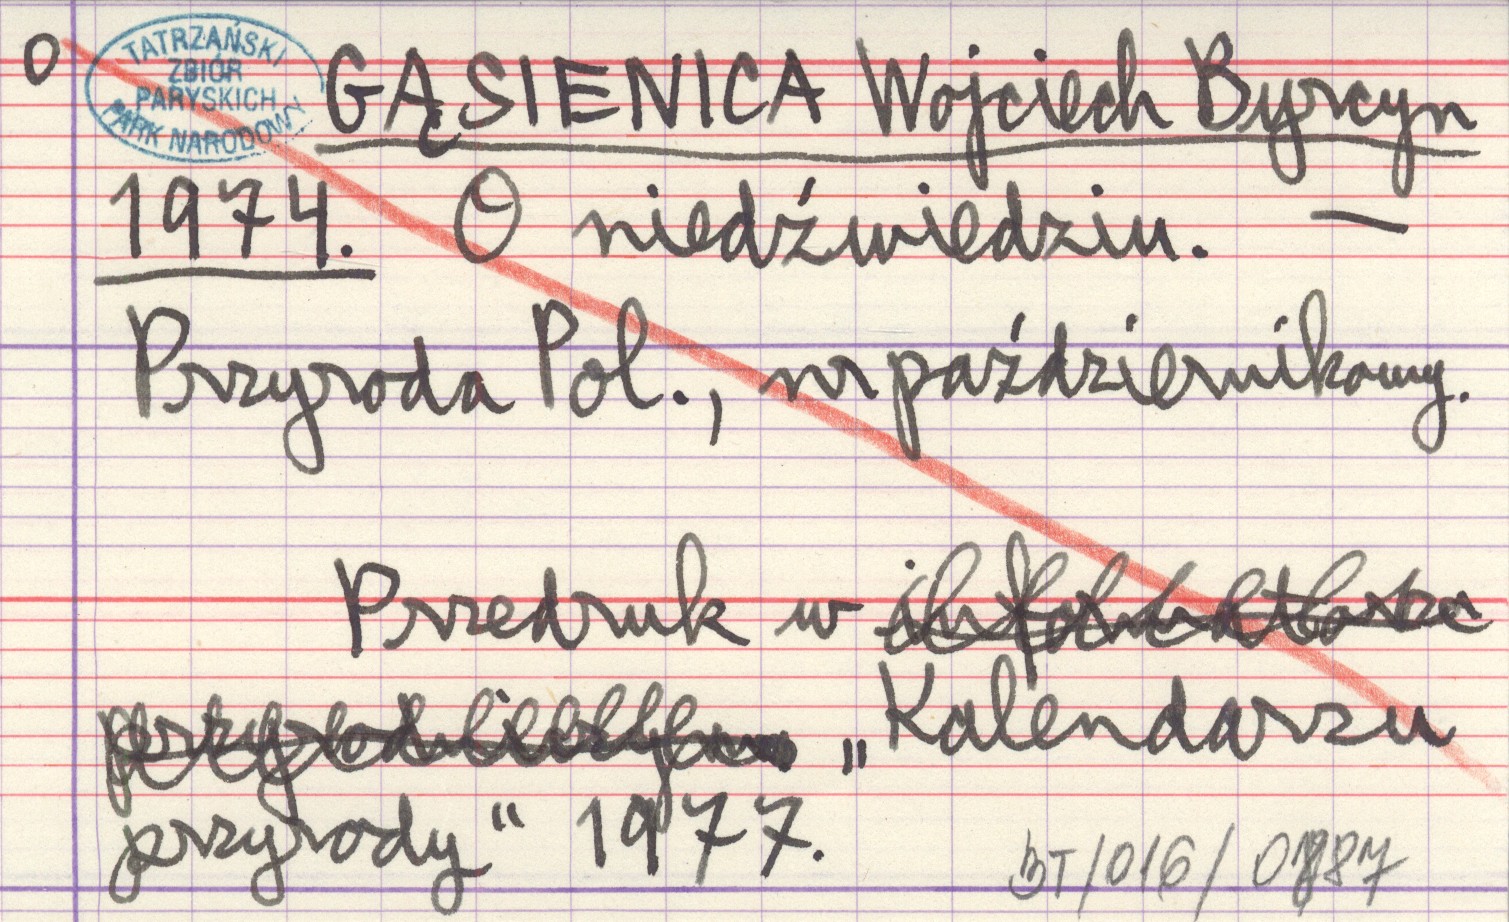 O
TATRZAŃSKI
ZBIÓR
PARYSKICH
PARK NARODOWY
GĄSIENICA Wojciech Byrcyn
1974. O niedźwiedziu. —
Przyroda Pol., nr październikowy.
Przedruk w
„Kalendarzu
przyrody“ 1977.
BT/016/0887